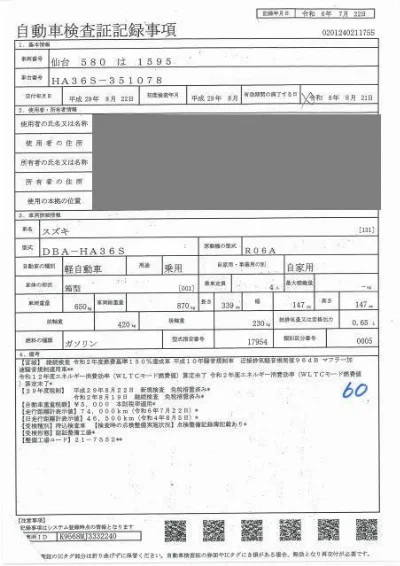 記録年月日 令和 6年 7月 22日
自動車検査証記録事項
0201240211755
1. 基本情報
車両番号 仙台 580 は 1595
車台番号 HA36S-351078
交付年月日 平成 29年 8月 22日 初度検査年月 平成 29年 8月 有効期間の満了する日 令和 8年 8月 21日
2. 使用者・所有者情報
使用者の氏名又は名称
使用者の住所
所有者の氏名又は名称
所有者の住所
使用の本拠の位置
3. 車両詳細情報
車名 スズキ [131]
型式 DBA-HA36S 原動機の型式 R06A
自動車の種別 軽自動車 用途 乗用 自家用・事業用の別 自家用
車体の形状 箱型 [001] 乗車定員 4人 最大積載量 -kg
車両重量 650kg 車両総重量 870kg 長さ 339cm 幅 147cm 高さ 147cm
前軸重 420kg 後軸重 230kg 総排気量又は定格出力 0.65L
燃料の種類 ガソリン 型式指定番号 17954 類別区分番号 0005
4. 備考
[宮城] 継続検査 令和2年度燃費基準150%達成車 平成10年騒音規制車 近接排気騒音規制値96dB マフラー加
速騒音規制適用車**
令和12年度エネルギー消費効率(WLTCモード燃費値)算定未了 令和2年度エネルギー消費効率(WLTCモード燃費値)
算定未了*
[29年度税制] 平成29年8月22日 新規検査 免税措置済み*
令和2年8月19日 継続検査 免税措置済み*
[自動車重量税額]¥5,000 本則税率適用*
[走行距離計表示値]74,000km(令和6年7月22日)*
[旧走行距離計表示値]46,500km(令和4年8月5日)*
[受検種別]持込検査車 [検査時の点検整備実施状況]点検整備記録簿記載あり*
[受検形態]認証整備工場*
[整備工場コード]21-7552**
60
【注意事項】
記録事項はシステム登録時点の情報となります
車両ID K9568MJ3332240